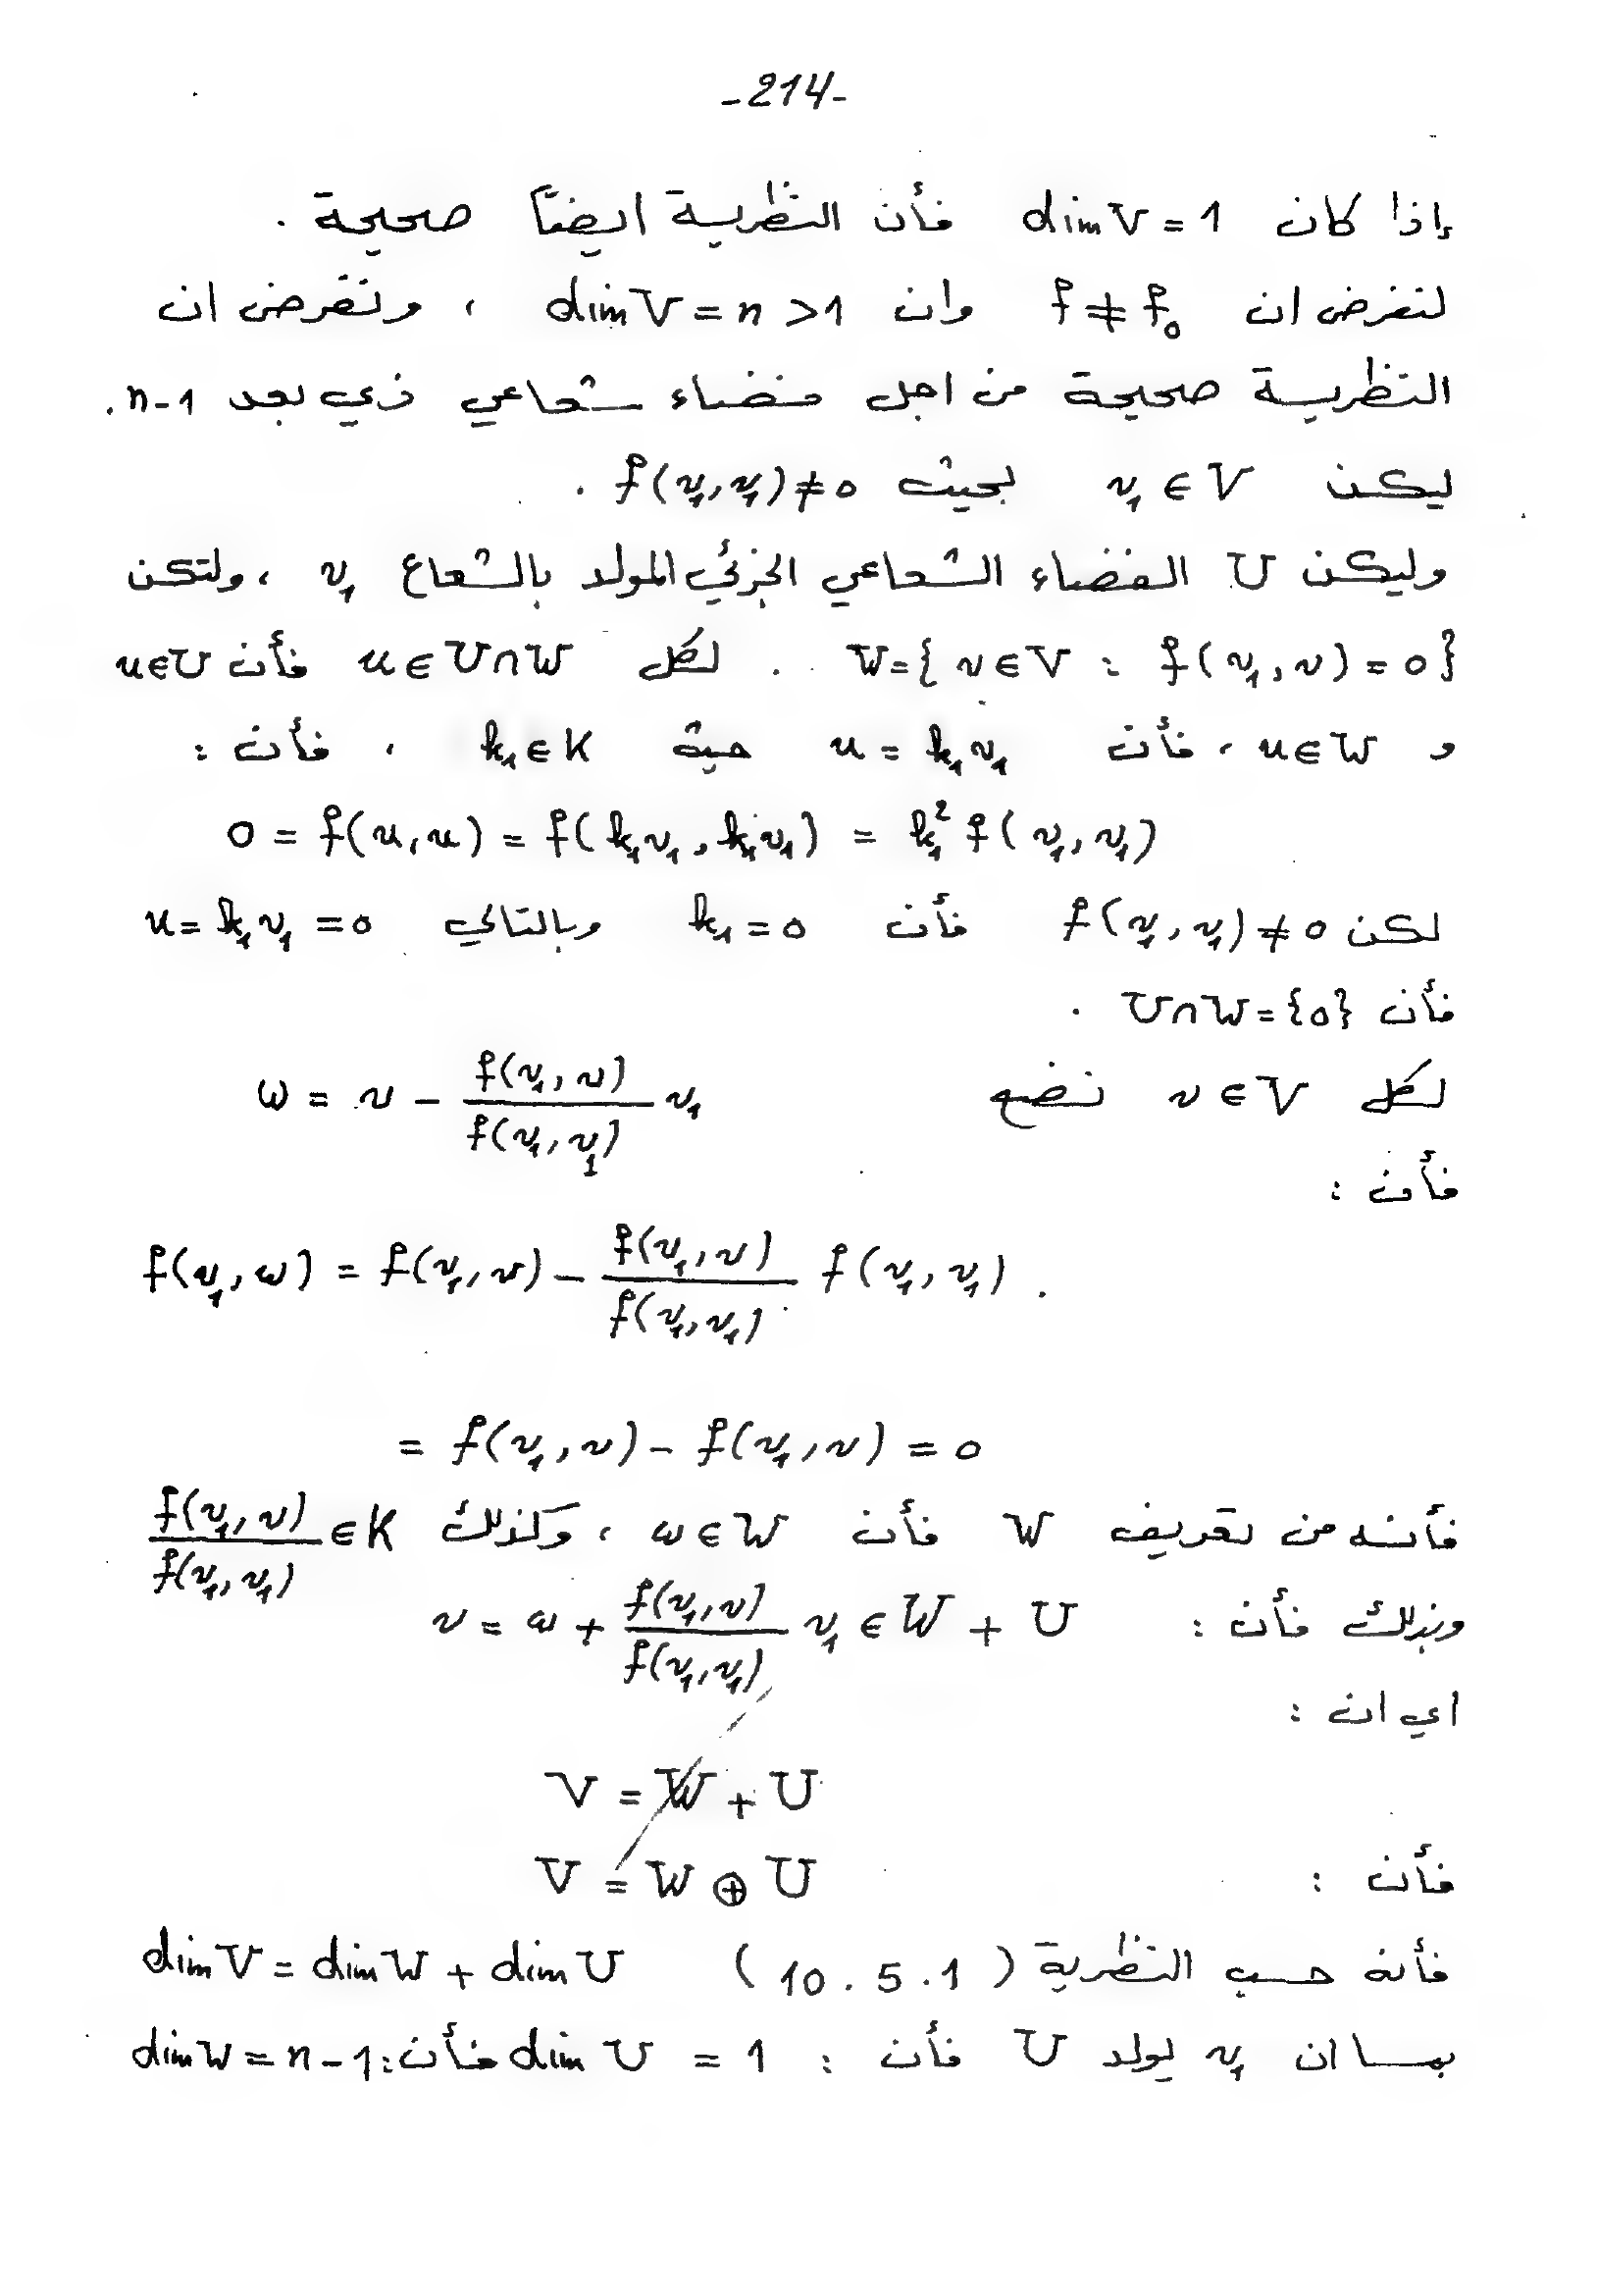 -214-
إذا كان dim V = 1 فأن النظرية ايضاً صحيحة .
لنفرض ان f ≠ f₀ وان dim V = n > 1 ، ونفرض ان
النظرية صحيحة من اجل فضاء شعاعي ذي بعد n-1 .
ليكن v₁ ∈ V بحيث f(v₁, v₁) ≠ 0 .
وليكن U الفضاء الشعاعي الجزئي المولد بالشعاع v₁ ، ولتكن
W = { v ∈ V : f(v₁, v) = 0 } . لكل u ∈ U ∩ W فأن u ∈ U
و u ∈ W ، فأن u = k₁v₁ حيث k₁ ∈ K ، فأن :
0 = f(u, u) = f(k₁v₁, k₁v₁) = k₁² f(v₁, v₁)
لكن f(v₁, v₁) ≠ 0 فأن k₁ = 0 وبالتالي u = k₁v₁ = 0
فأن U ∩ W = {0} .
لكل v ∈ V نضع ω = v - \frac{f(v₁, v)}{f(v₁, v₁)} v₁
فأن :
f(v₁, ω) = f(v₁, v) - \frac{f(v₁, v)}{f(v₁, v₁)} f(v₁, v₁) .
= f(v₁, v) - f(v₁, v) = 0
فأنه من تعريف W فأن ω ∈ W ، وكذلك \frac{f(v₁, v)}{f(v₁, v₁)} ∈ K
وبذلك فأن : v = ω + \frac{f(v₁, v)}{f(v₁, v₁)} v₁ ∈ W + U
اي ان :
V = W + U
فأن : V = W ⊕ U
فأنه حسب النظرية ( 10 . 5 . 1 ) dim V = dim W + dim U
بما ان v₁ يولد U فأن : dim U = 1 فأن: dim W = n-1